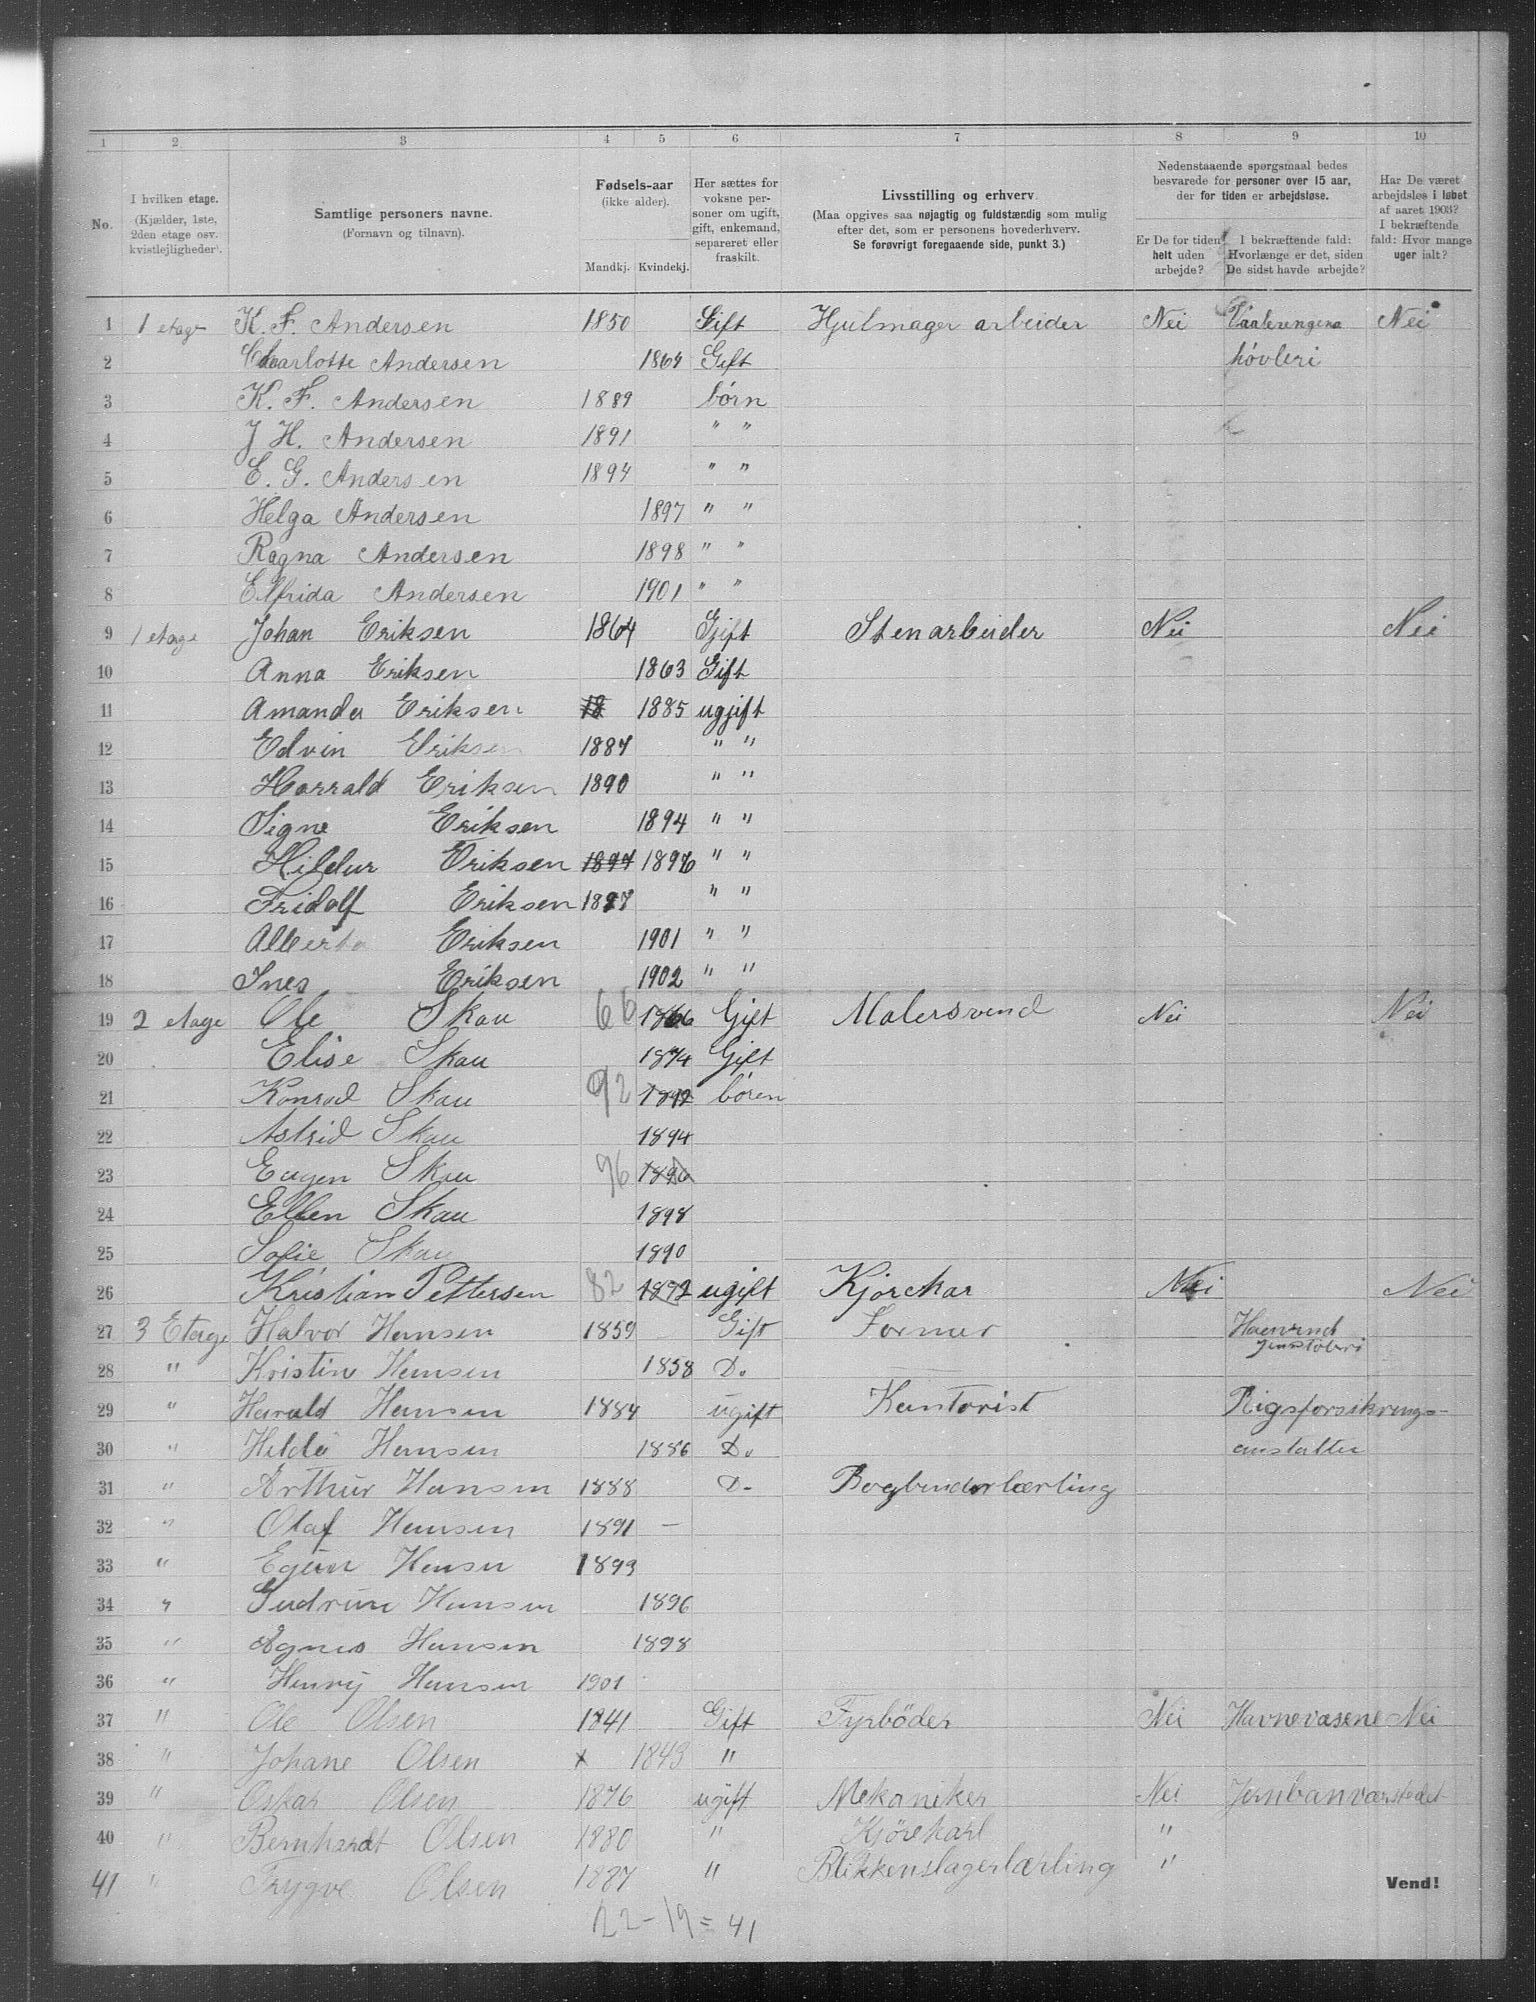 1 2 3 4 5 6 7 8 9 10
No.
I hvilken etage.
(Kjælder, 1ste, 2den etage osv. kvistlejligheder).
Samtlige personers navne.
(Fornavn og tilnavn).
Fødsels-aar
(ikke alder).
Mandkj. Kvindekj.
Her sættes for voksne personer om ugift, gift, enkemand, separeret eller fraskilt.
Livsstilling og erhverv.
(Maa opgives saa nøjagtig og fuldstændig som mulig efter det, som er personens hovederhverv.
Se forøvrigt foregaaende side, punkt 3.)
Nedenstaaende spørgsmaal bedes besvarede for personer over 15 aar, der for tiden er arbejdsløse.
Er De for tiden helt uden arbejde?
I bekræftende fald: Hvorlænge er det, siden De sidst havde arbejde?
Har De været arbejdsløs i løbet af aaret 1903? I bekræftende fald: Hvor mange uger ialt?
1 1 etage K. F. Andersen 1850 Gift Hjulmager arbeider Nei Vaalerengena Nei
2 Charlotte Andersen 1864 Gift høvleri
3 K. F. Andersen 1889 børn
4 J H. Andersen 1891 " "
5 E. G. Andersen 1894 " "
6 Helga Andersen 1897 " "
7 Ragna Andersen 1898 " "
8 Elfrida Andersen 1901 " "
9 1 etage Johan Eriksen 1864 Gjift Stenarbeider Nei Nei
10 Anna Eriksen 1863 Gift
11 Amanda Eriksen 18 1885 ugjift
12 Edvin Eriksen 1887 " "
13 Harrald Eriksen 1890 " "
14 Signe Eriksen 1894 " "
15 Hildur Eriksen 1897 1896 " "
16 Fridolf Eriksen 1897 " "
17 Alberta Eriksen 1901 " "
18 Ines Eriksen 1902 " "
19 2 etage Ole Skau 66 1866 Gift Malersvend Nei Nei
20 Elise Skau 1874 Gift
21 Konrad Skau 92 1892 børen
22 Astrid Skau 1894
23 Eugen Skau 96 1896
24 Ellen Skau 1898
25 Sofie Skau 1890
26 Kristian Pettersen 82 1872 ugift Kjørekar Nei Nei
27 3 Etage Halvor Hansen 1859 Gift Former Haevind
28 " Kristine Hansen 1858 Do jernstøberi
29 " Harald Hansen 1884 ugift Kontorist Rigsforsikrings-
30 " Hilda Hansen 1886 Do anstalten
31 " Arthur Hansen 1888 D- Bogbinderlærling
32 " Olaf Hansen 1891 —
33 " Hansen 1893
34 " Gudrun Hansen 1896
35 " Agnes Hansen 1898
36 " Henry Hansen 1901
37 " Ole Olsen 1841 Gift Fyrbøder Nei Havnevæsene Nei
38 " Johane Olsen x 1843 "
39 " Oskar Olsen 1876 ugift Mekaniker Nei Jernbanværstedet
40 " Bernhardt Olsen 1880 " Kjørekarl "
41 " Trygve Olsen 1887 " Blikkenslagerlærling "
Vend!
22-19=41